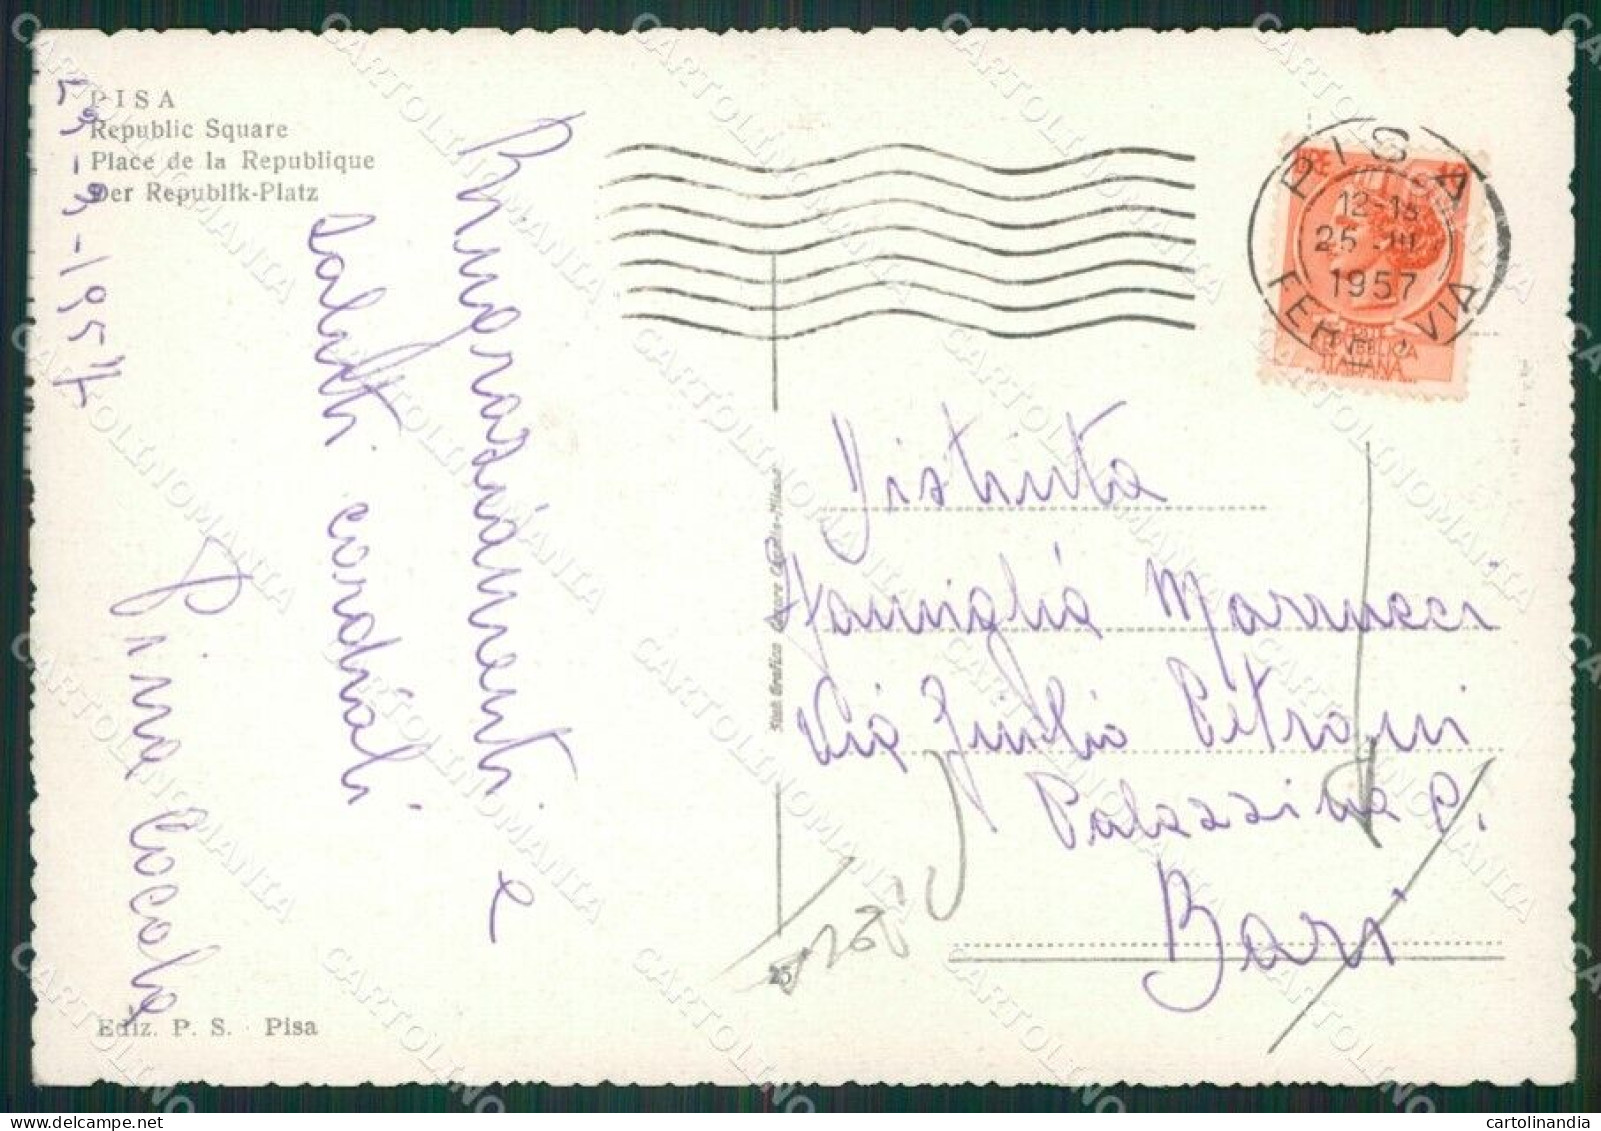 PISA
Republic Square
Place de la Republique
Der Republik-Platz
25-3-1957
Ringraziamenti e
saluti cordiali
Pina
Ediz. P. S. Pisa
25
PISA
12-13
25 III
1957
FERROVIA
REPUBBLICA
ITALIANA
Distinta
Famiglia Marrucci
Via Giulio Petroni
Palazzina P.
Bari
CARTOLINOMANIA
cartolinandia